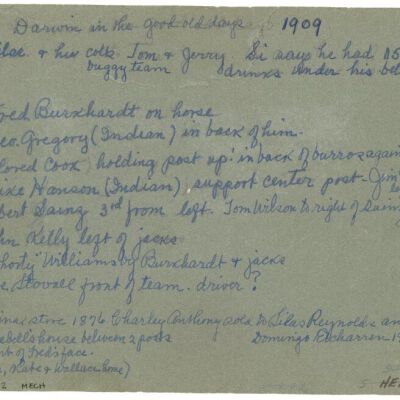 Darwin in the good old days 1909
& his colts Tom & Jerry Si says he had 15
buggy team drinks under his bel
Fred Burkhardt on horse
eo. Gregory (Indian) in back of him.
lored Cook) holding post up! in back of burros again
ike Hanson (Indian) support center post - Jim
bert Sainz 3rd from left. Tom Wilson to right of Sainz
hn Kelly left of jacks
horty" Williams by Burkhardt & jacks
Stovall front of team. driver?
inal store 1876 Charley Anthony sold to Silas Reynolds an
bell's house between 2 posts Domingo 19
nt of Fred's face.
, Kate & Wallace home)
2 MECH